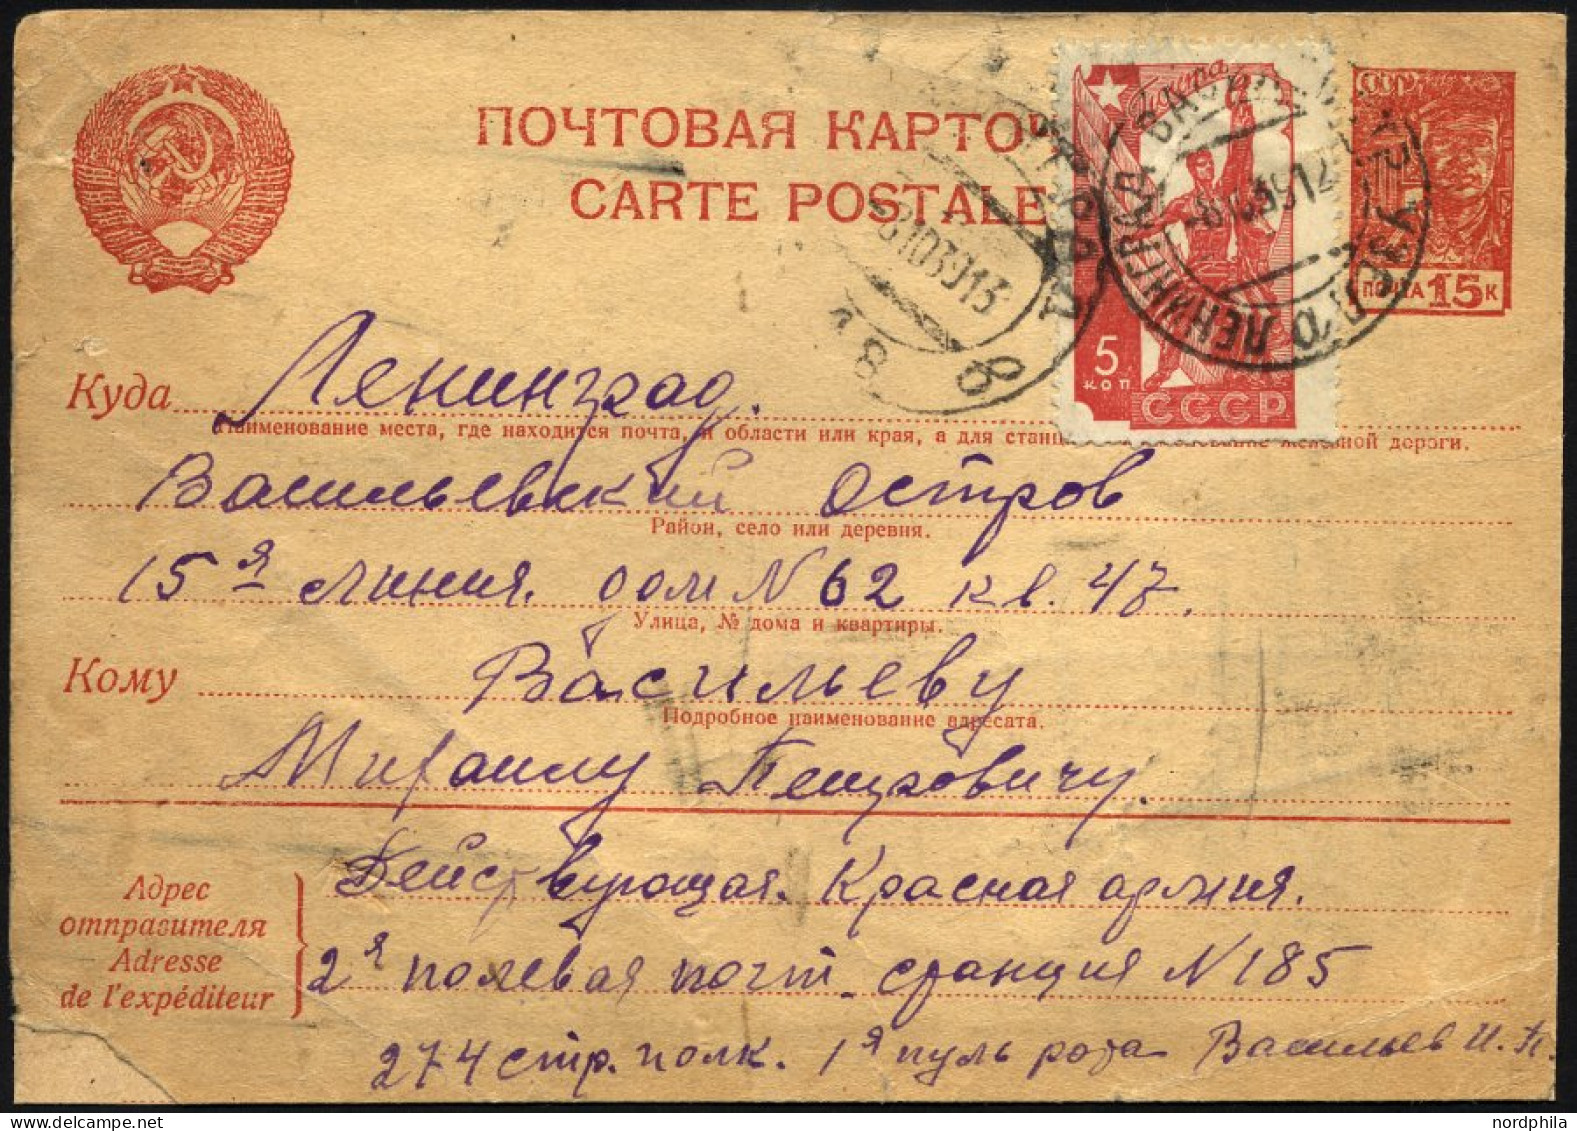 ПОЧТОВАЯ КАРТОЧ
CARTE POSTALE
СССР
ПОЧТА 15 К
Почта
5
коп
СССР
ЛЕНИНГРАД
8 10 39 12
8 10 39 13
8
8
Куда Ленинград.
Наименование места, где находится почта, и области или края, а для станц железной дороги.
Васильевский Остров
Район, село или деревня.
15я линия. дом N 62 кв. 47.
Улица, № дома и квартиры.
Кому Васильеву
Подробное наименование адресата.
Михаилу Петровичу.
Действующая. Красная армия.
Адрес
отправителя
Adresse
de l'expéditeur
2я полевая почт. станция N 185
274 стр. полк. 1я пуль рота Васильев И. П.
www.delcampe.net
nordphila